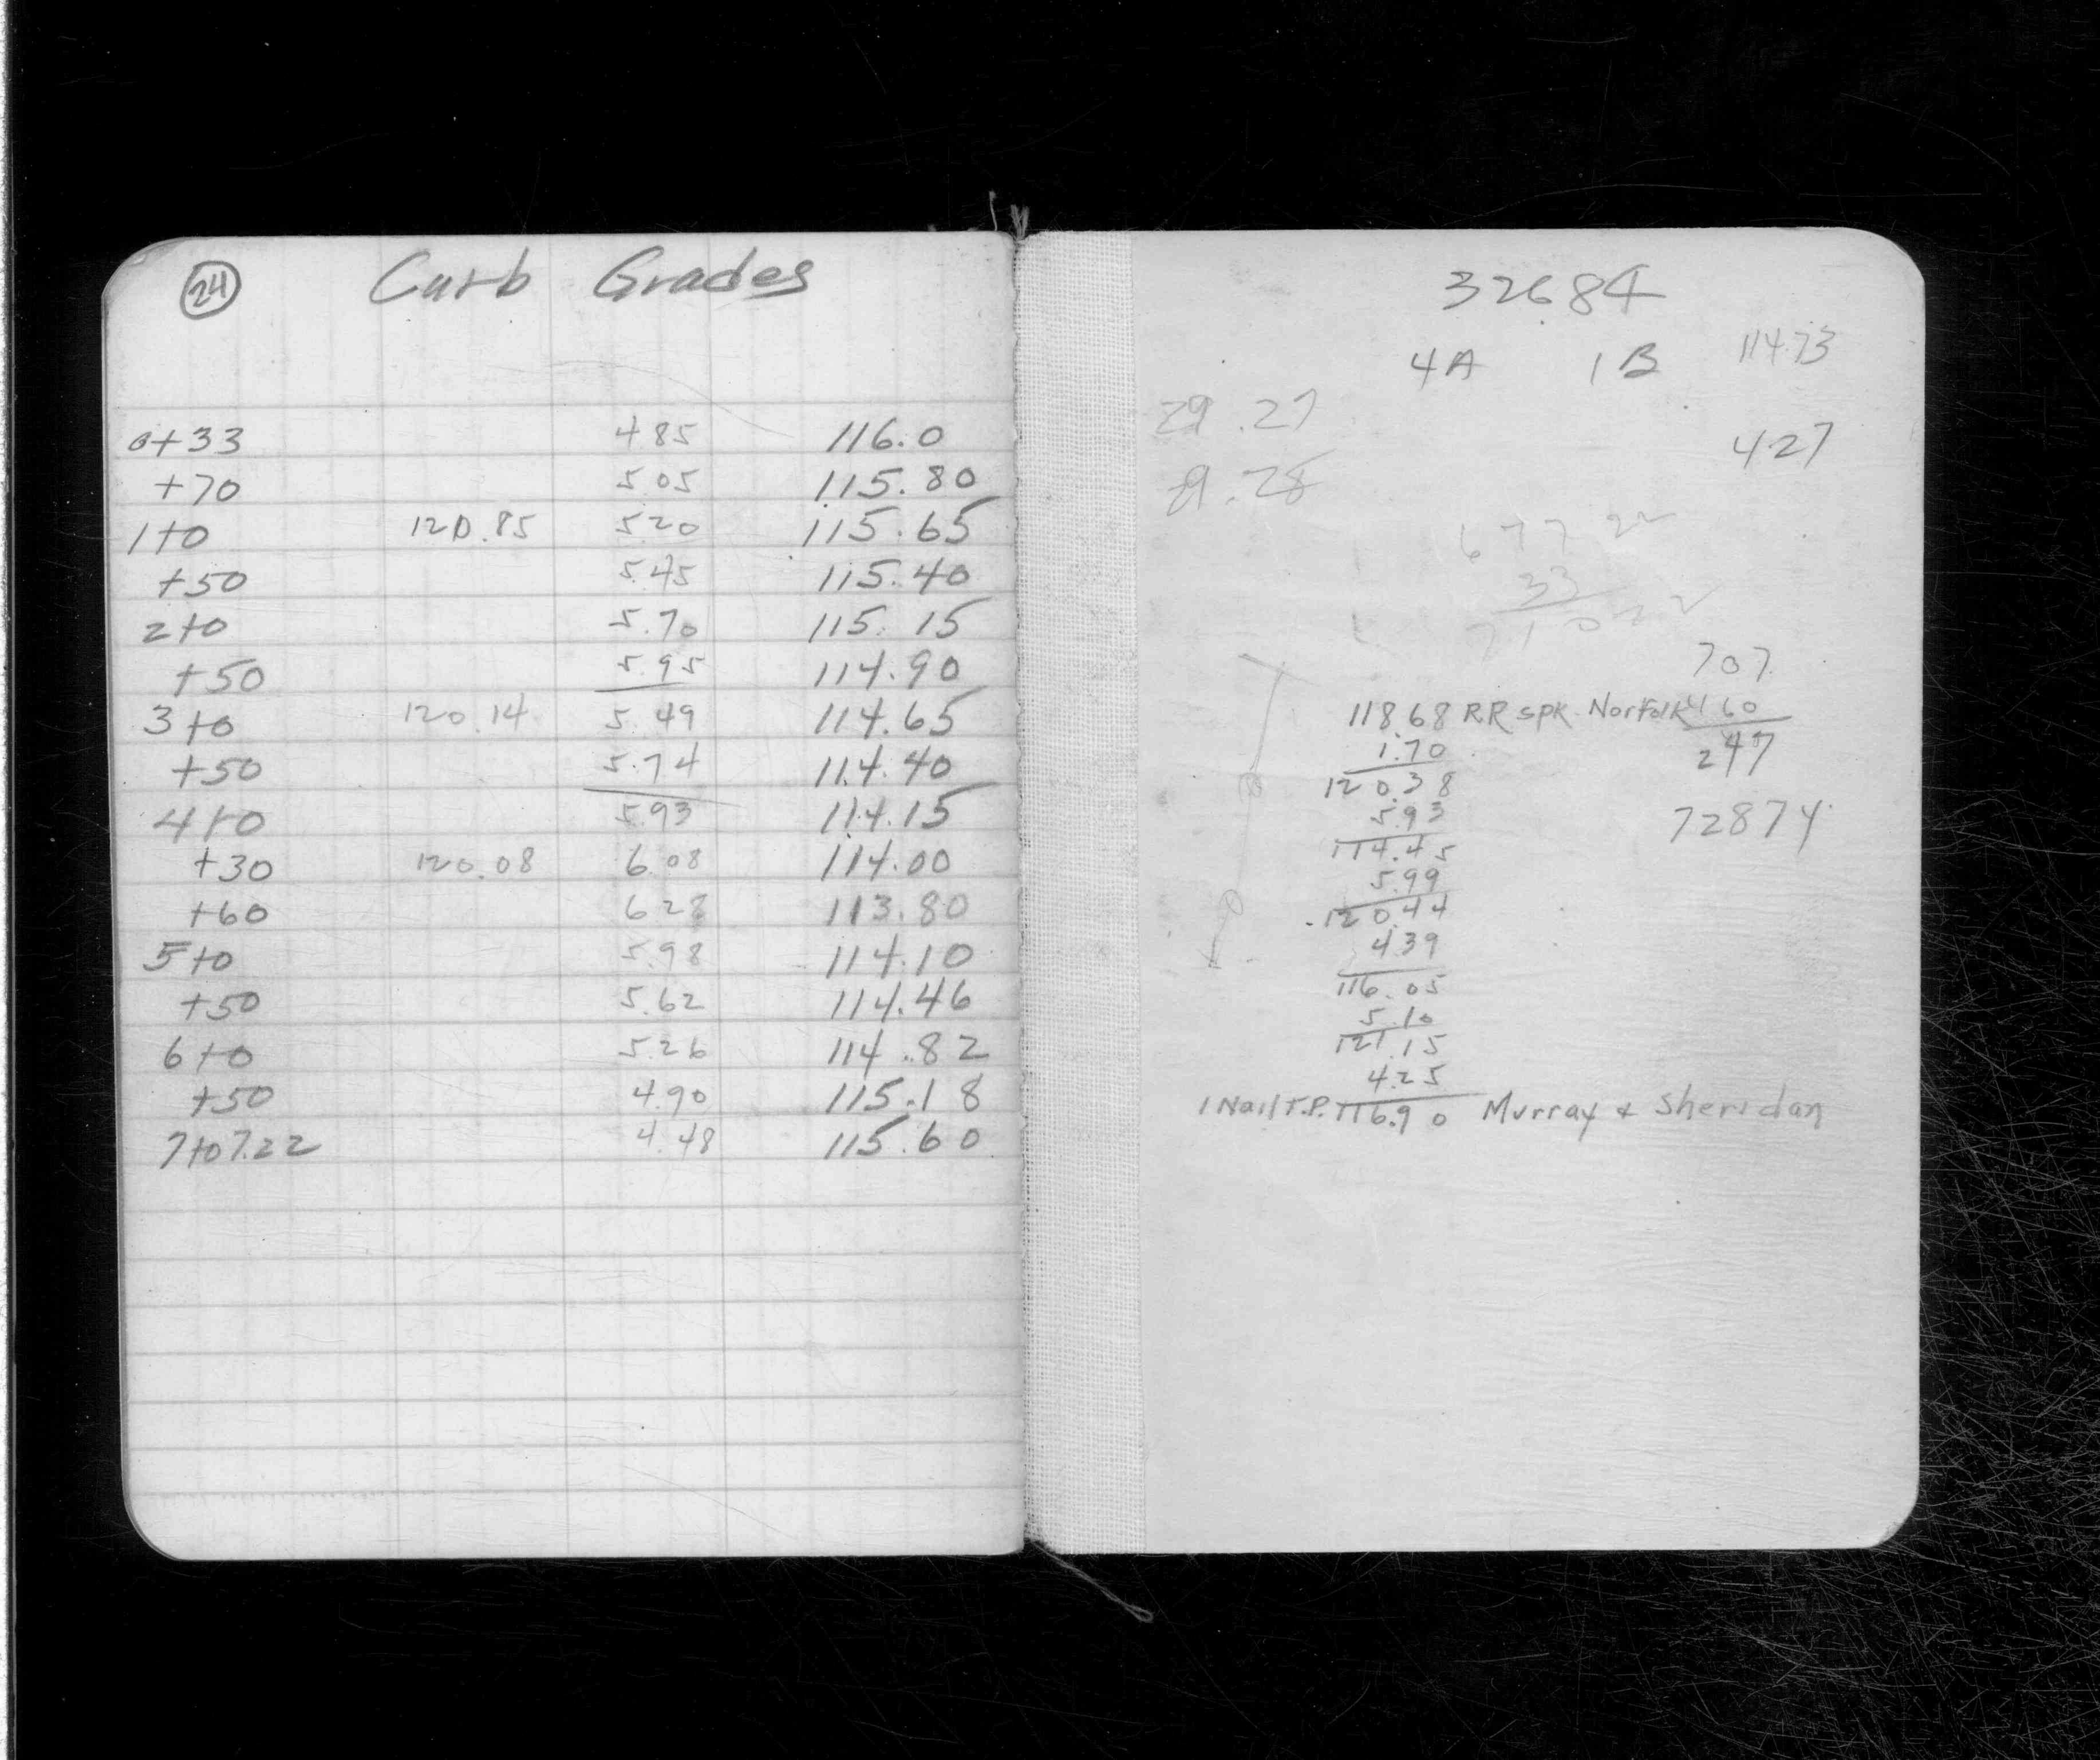 24 Curb Grades
0+33 4 85 116.0
+70 5 05 115.80
1+0 120.85 5.20 115.65
+50 5.45 115.40
2+0 5.70 115.15
+50 5.95 114.90
3+0 120.14 5.49 114.65
+50 5.74 114.40
4+0 5.93 114.15
+30 120.08 6.08 114.00
+60 6 28 113.80
5+0 5.98 114.10
+50 5.62 114.46
6+0 5.26 114.82
+50 4.90 115.18
7+07.22 4.48 115.60
32684
4A 1B 114.73
29.27
427
29.28
677 22
33
710 22
707
118 68 RR spk. Norfolk 460
1.70 247
120.38
5.93 72874
114.45
5.99
120.44
4.39
116.05
5.10
121.15
4.25
1 Nail T.P. 116.90 Murray & Sheridan